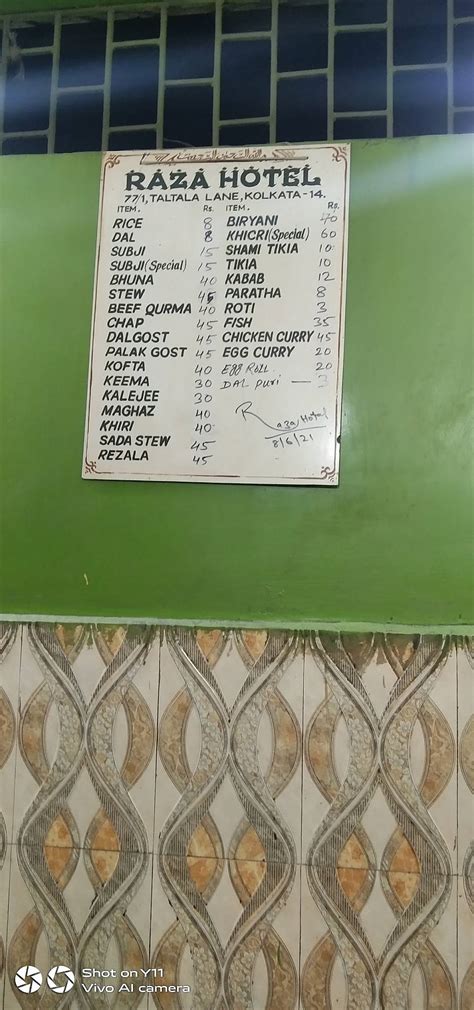 RAZA HOTEL
77/1, TALTALA LANE, KOLKATA-14.
ITEM. Rs.
RICE 8
DAL 8
SUBJI 15
SUBJI (Special) 15
BHUNA 40
STEW 45
BEEF QURMA 40
CHAP 45
DALGOST 45
PALAK GOST 45
KOFTA 40
KEEMA 30
KALEJEE 30
MAGHAZ 40
KHIRI 40
SADA STEW 45
REZALA 45
ITEM. Rs.
BIRYANI 70
KHICRI (Special) 60
SHAMI TIKIA 10
TIKIA 10
KABAB 12
PARATHA 8
ROTI 3
FISH 35
CHICKEN CURRY 45
EGG CURRY 20
EGG ROLL 20
DAL PURI — 3
Raza Hotel
8/6/21
Shot on Y11
Vivo AI camera